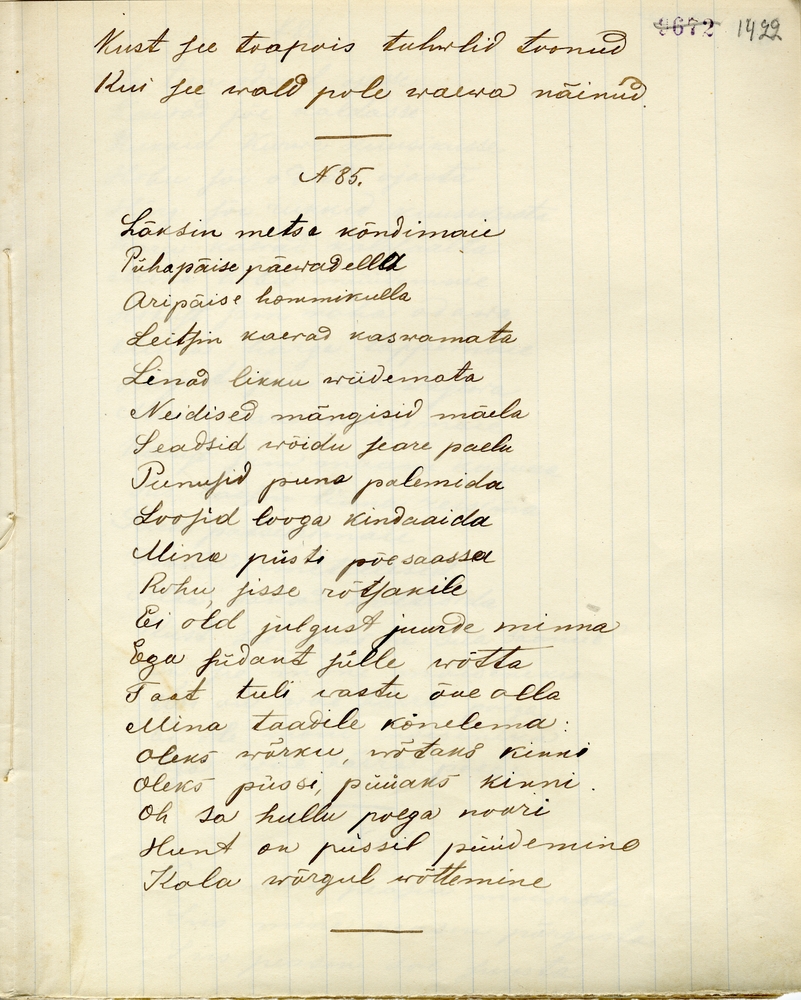 4672 1422
Kust see toapois tuhwlid toonud
Kui see wald pole waewa näinud.
N 85.
Läksin metsa kõndimaie
Pühapäise päewadella
Aripäise hommikulla
Leitsin kaerad kaswamata
Linad likku wiidemata
Neidised mängisid mäela
Seadsid wõidu seare paelu
Punusid puna palemida
Loosid looga kindaaida
Mina püsti põesaassa
Rohu sisse rõtsakile
Ei old julgust juurde minna
Ega südant sülle wõtta
Taat tuli wastu õue alla
Mina taadile kõnelema:
Oleks wõrku, wõtaks kinni
Oleks püssi, püüaks kinni.
Oh sa hullu poega noori
Hunt on püssil püüdemine
Kala wõrgul wõttemine